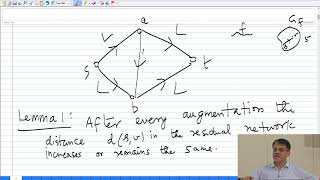 a
G_f
s
t
b
Lemma 1: After every augmentation the
distance d(s,v) in the residual network
increases or remains the same.